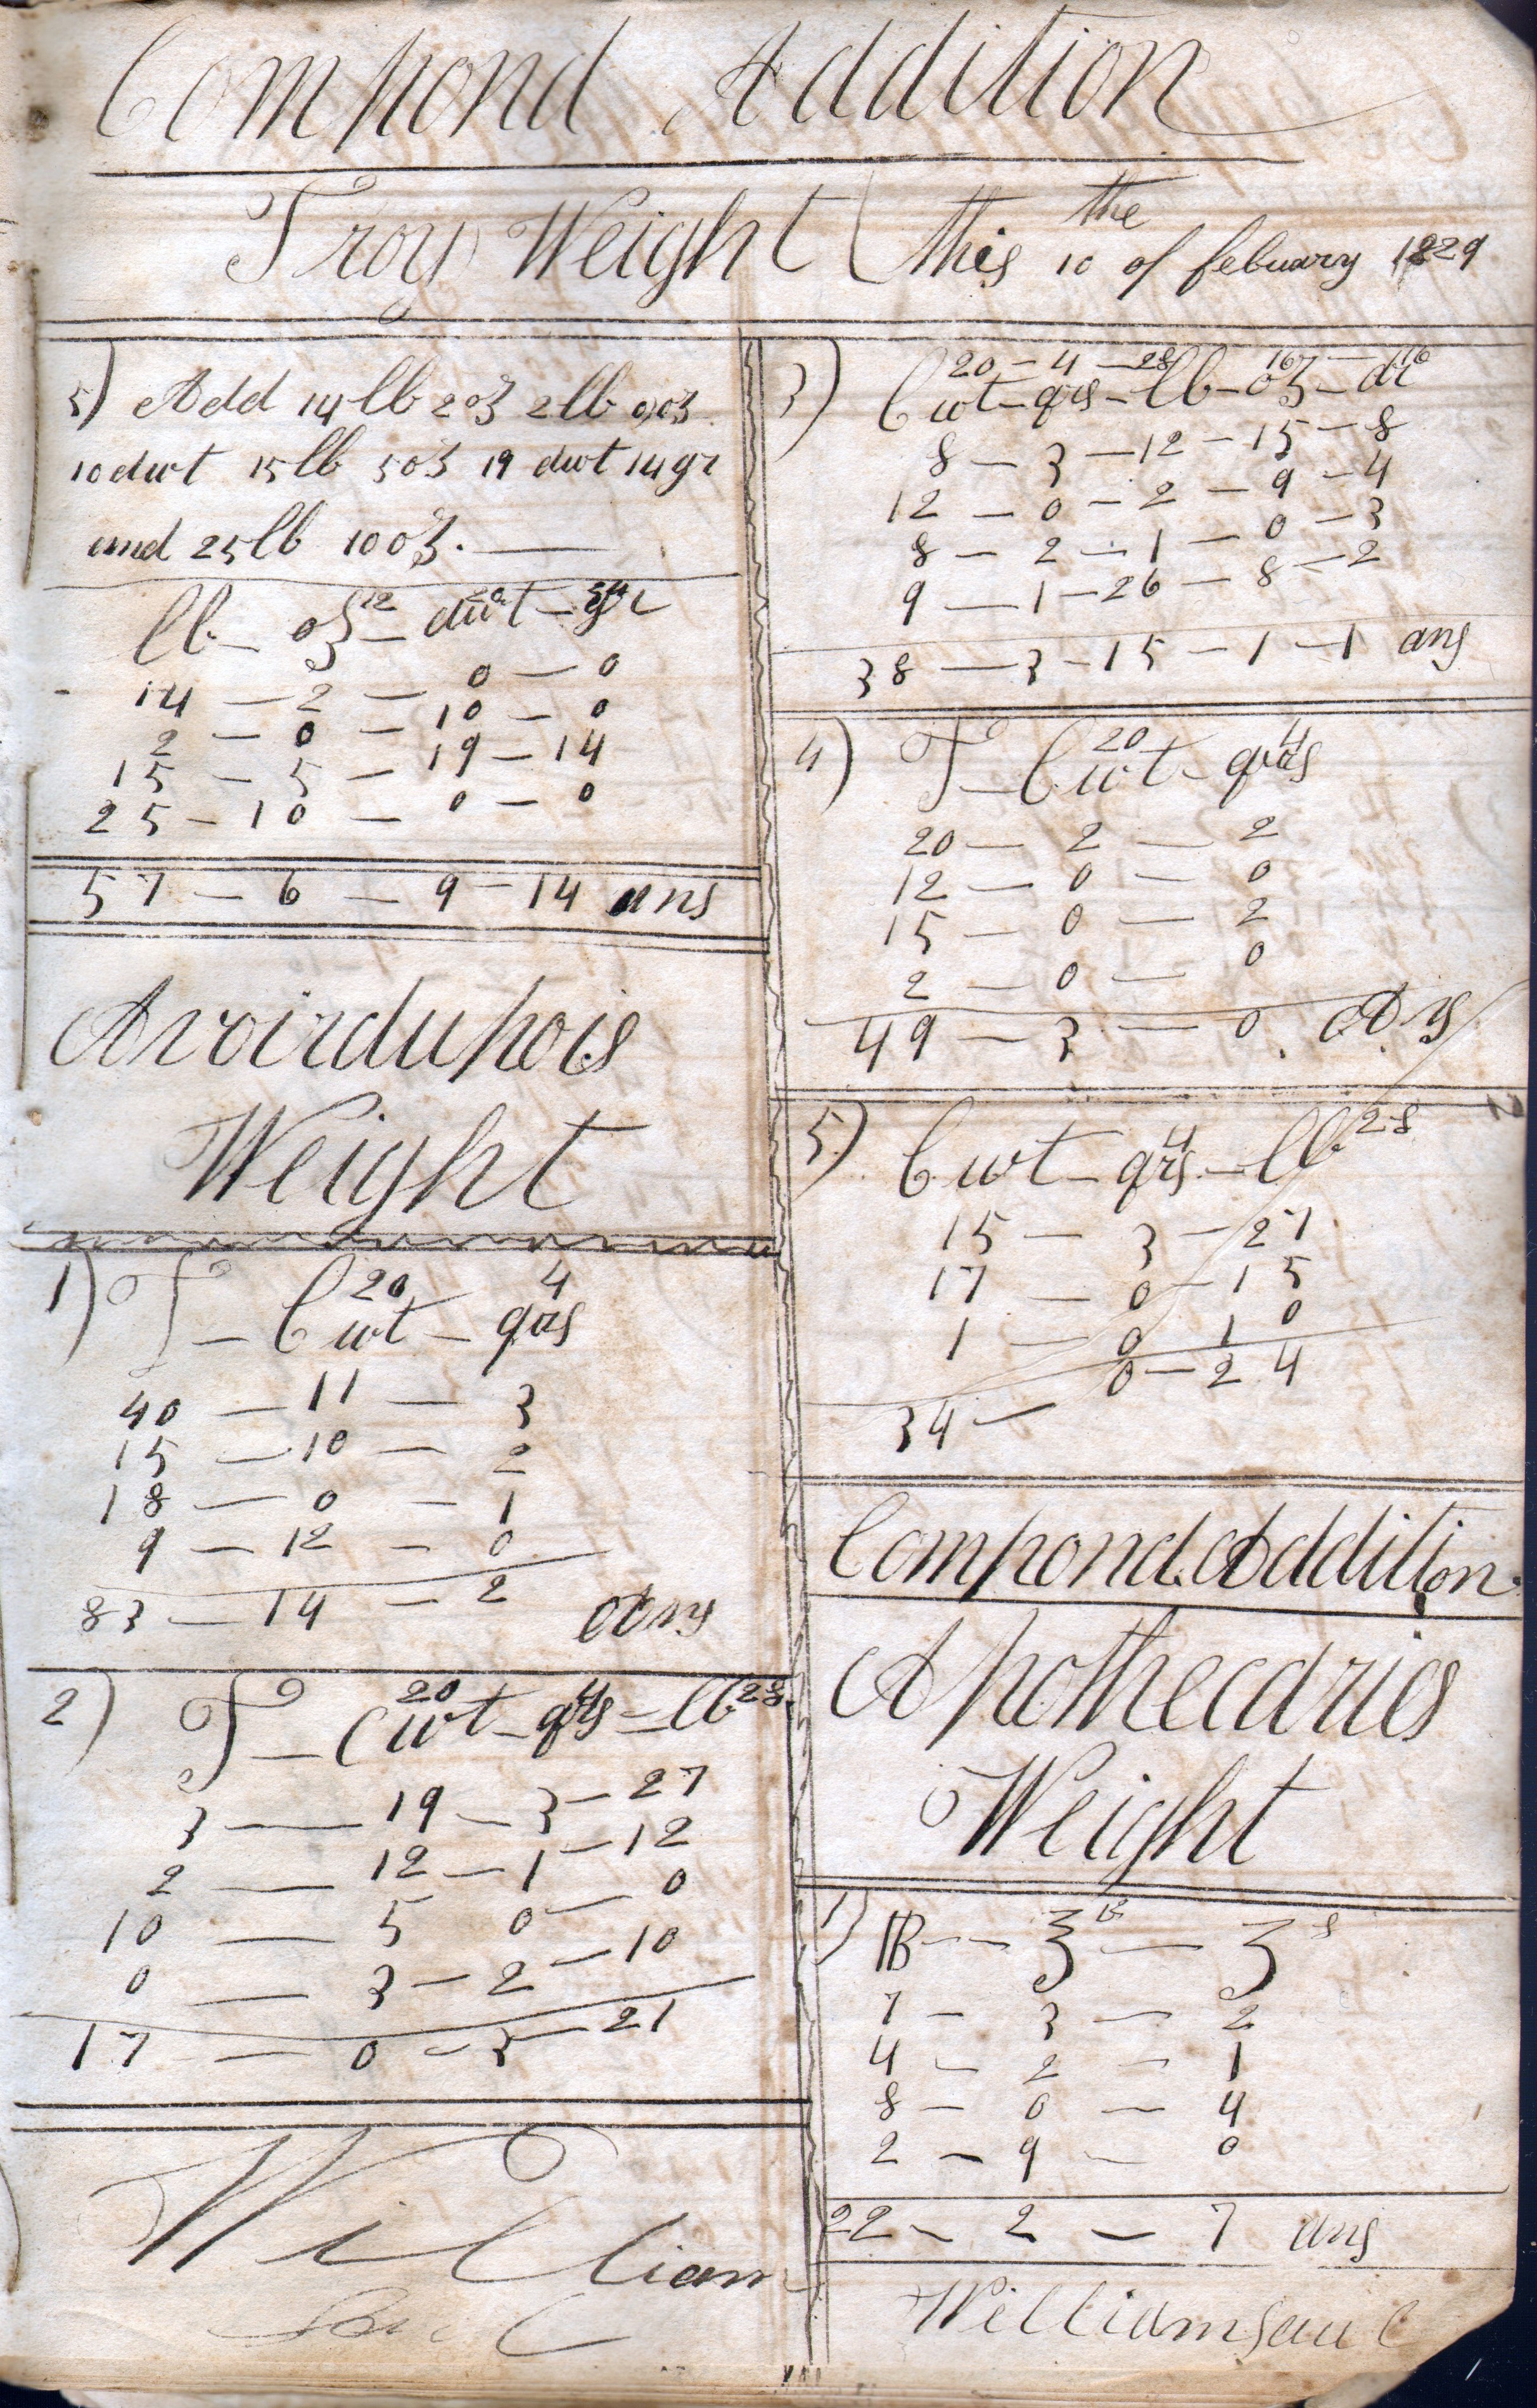 Compond Addition
Troy Weight ( this the 10 of febuary 1829
5) Add 14 lb 2 oz 2 lb 0 oz
10 dwt 15 lb 5 oz 19 dwt 14 gr
and 25 lb 10 oz. —
lb — oz 12 — dwt 20 — gr 24
14 — 2 — 0 — 0
2 — 0 — 10 — 0
15 — 5 — 19 — 14
25 — 10 — 0 — 0
57 — 6 — 9 — 14 ans
Avoirdupois
Weight
1) T — Cwt 20 — qrs 4
40 — 11 — 3
15 — 10 — 2
18 — 0 — 1
9 — 12 — 0
83 — 14 — 2 Ans
2) T — Cwt 20 — qrs 4 — lb 28
3 — 19 — 3 — 27
2 — 12 — 1 — 12
10 — 5 0 — 0
0 — 3 — 2 — 10
17 — 0 — 3 — 21
William
Saul
3) 20 — 4 — 28 16 — 16
Cwt — qrs — lb — oz — dr
8 — 3 — 12 — 15 — 8
12 — 0 — 2 — 9 — 4
8 — 2 — 1 — 0 — 3
9 — 1 — 26 — 8 — 2
38 — 3 — 15 — 1 — 1 ans
4) T — Cwt 20 — qrs 4
20 — 2 — 2
12 — 0 — 0
15 — 0 — 2
2 — 0 — 0
49 — 3 — 0. Ans
5) Cwt — qrs 4 — lb 28
15 — 3 — 27
17 — 0 — 15
1 — 0 10
34 — 0 — 24
Compond Addition.
Apothecaries
Weight
1) lB — ℥ 12 — ʒ 8
7 — 3 — 2
4 — 2 — 1
8 — 0 — 4
2 — 9 — 0
22 — 2 — 7 ans
William Saul